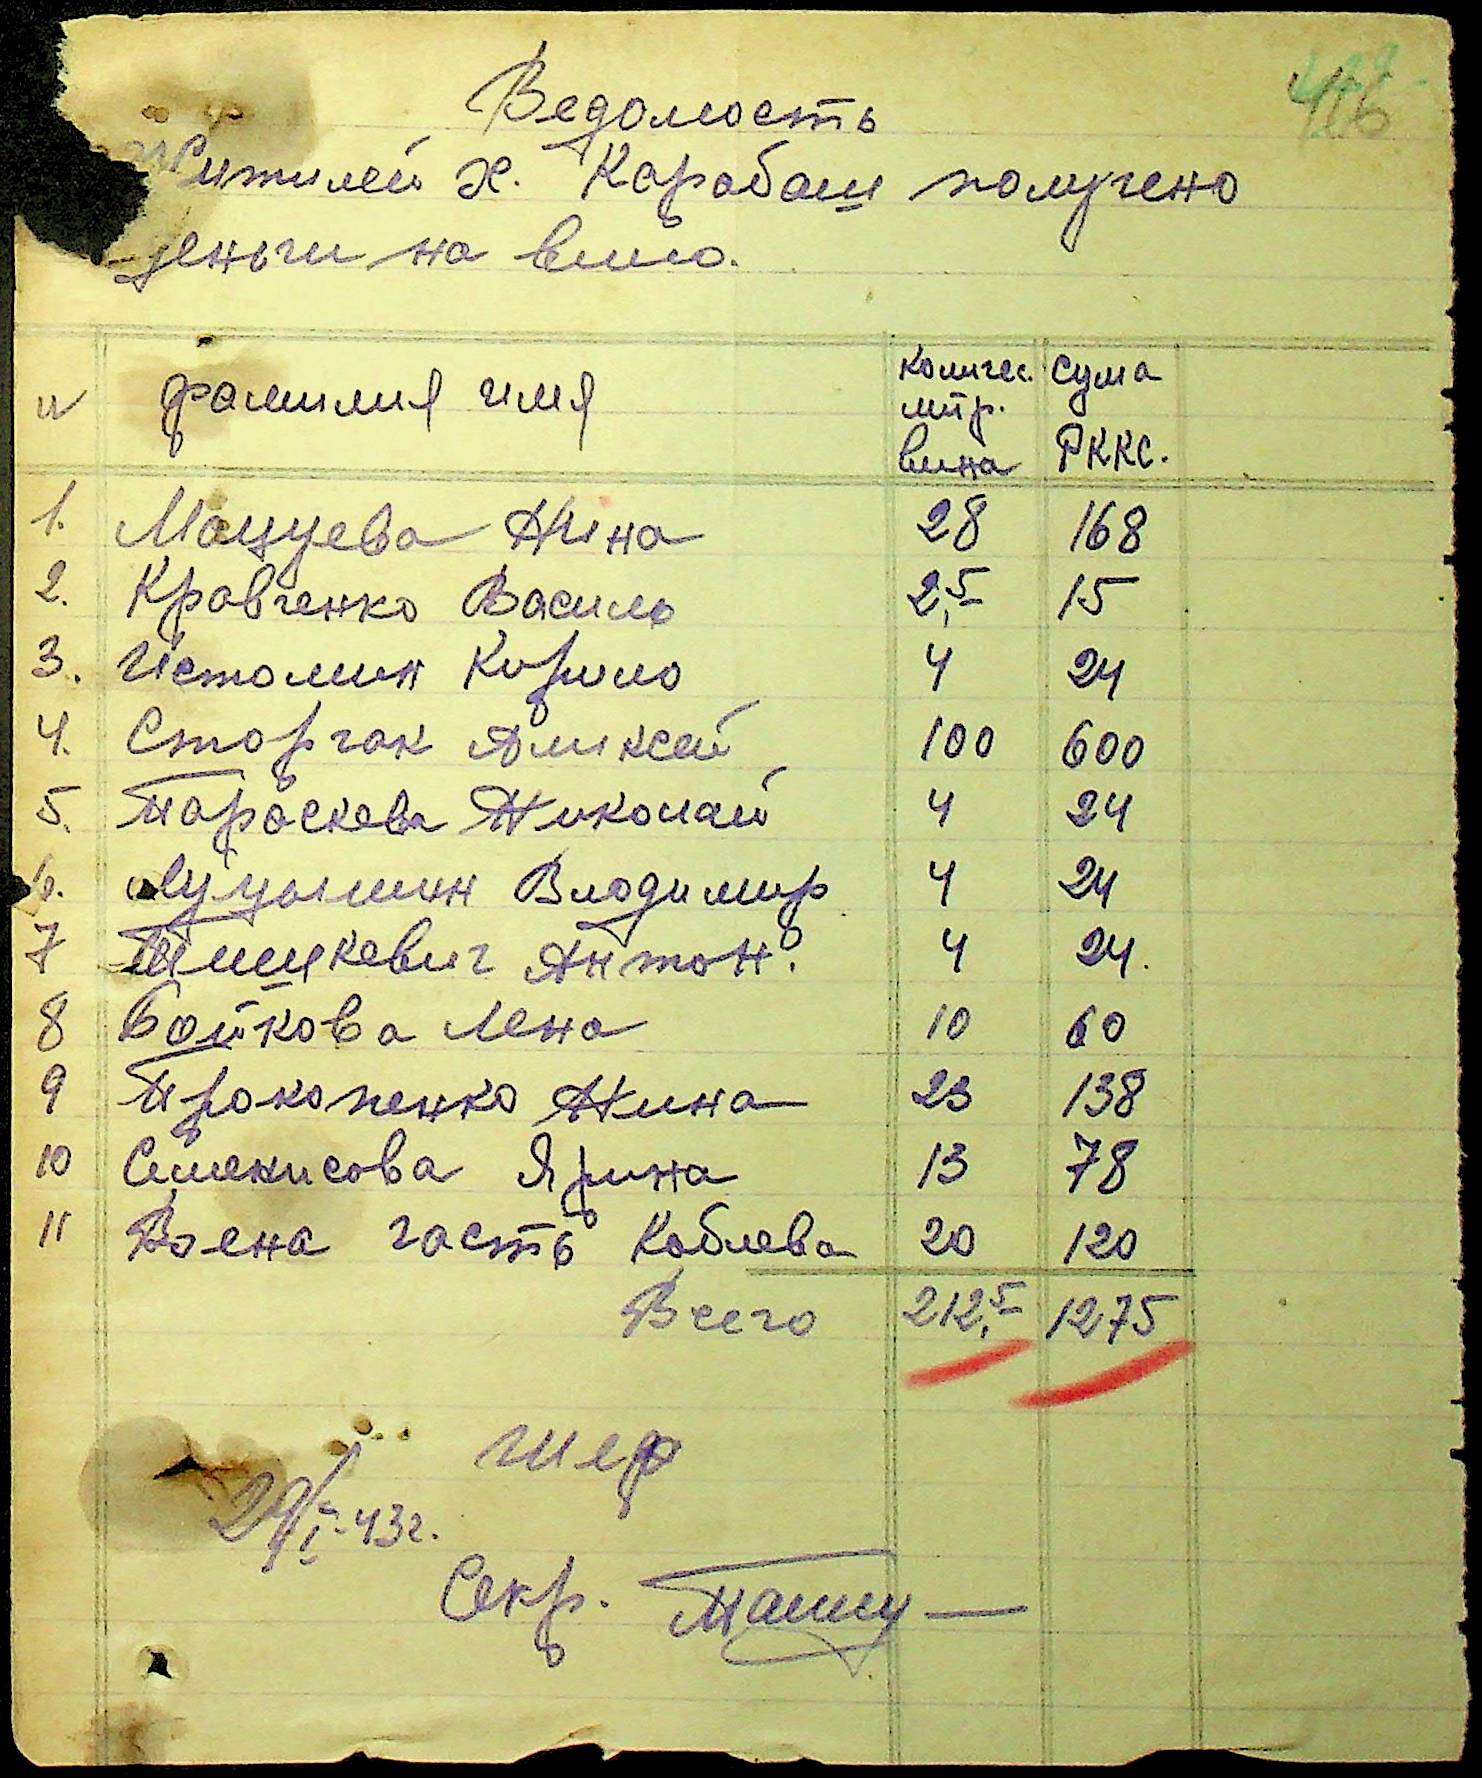 Ведомость
Жителей х. Карабаш получено
деньги на вино.
н фамилия имя количес. митр. вина сума РККС.
1. Мацуева Нина 28 168
2. Кравченко Василь 2,5 15
3. Истомин Кирило 4 24
4. Сторчак Аликсей 100 600
5. Параскева Николай 4 24
6. Владимир 4 24
7 Антон. 4 24.
8 Бойкова Лена 10 60
9 Прокопенко Нина 23 138
10 Ярина 13 78
11 Воена часть Коблева 20 120
Всего 212,5 1275
шеф
29/I-43г.
Секр.